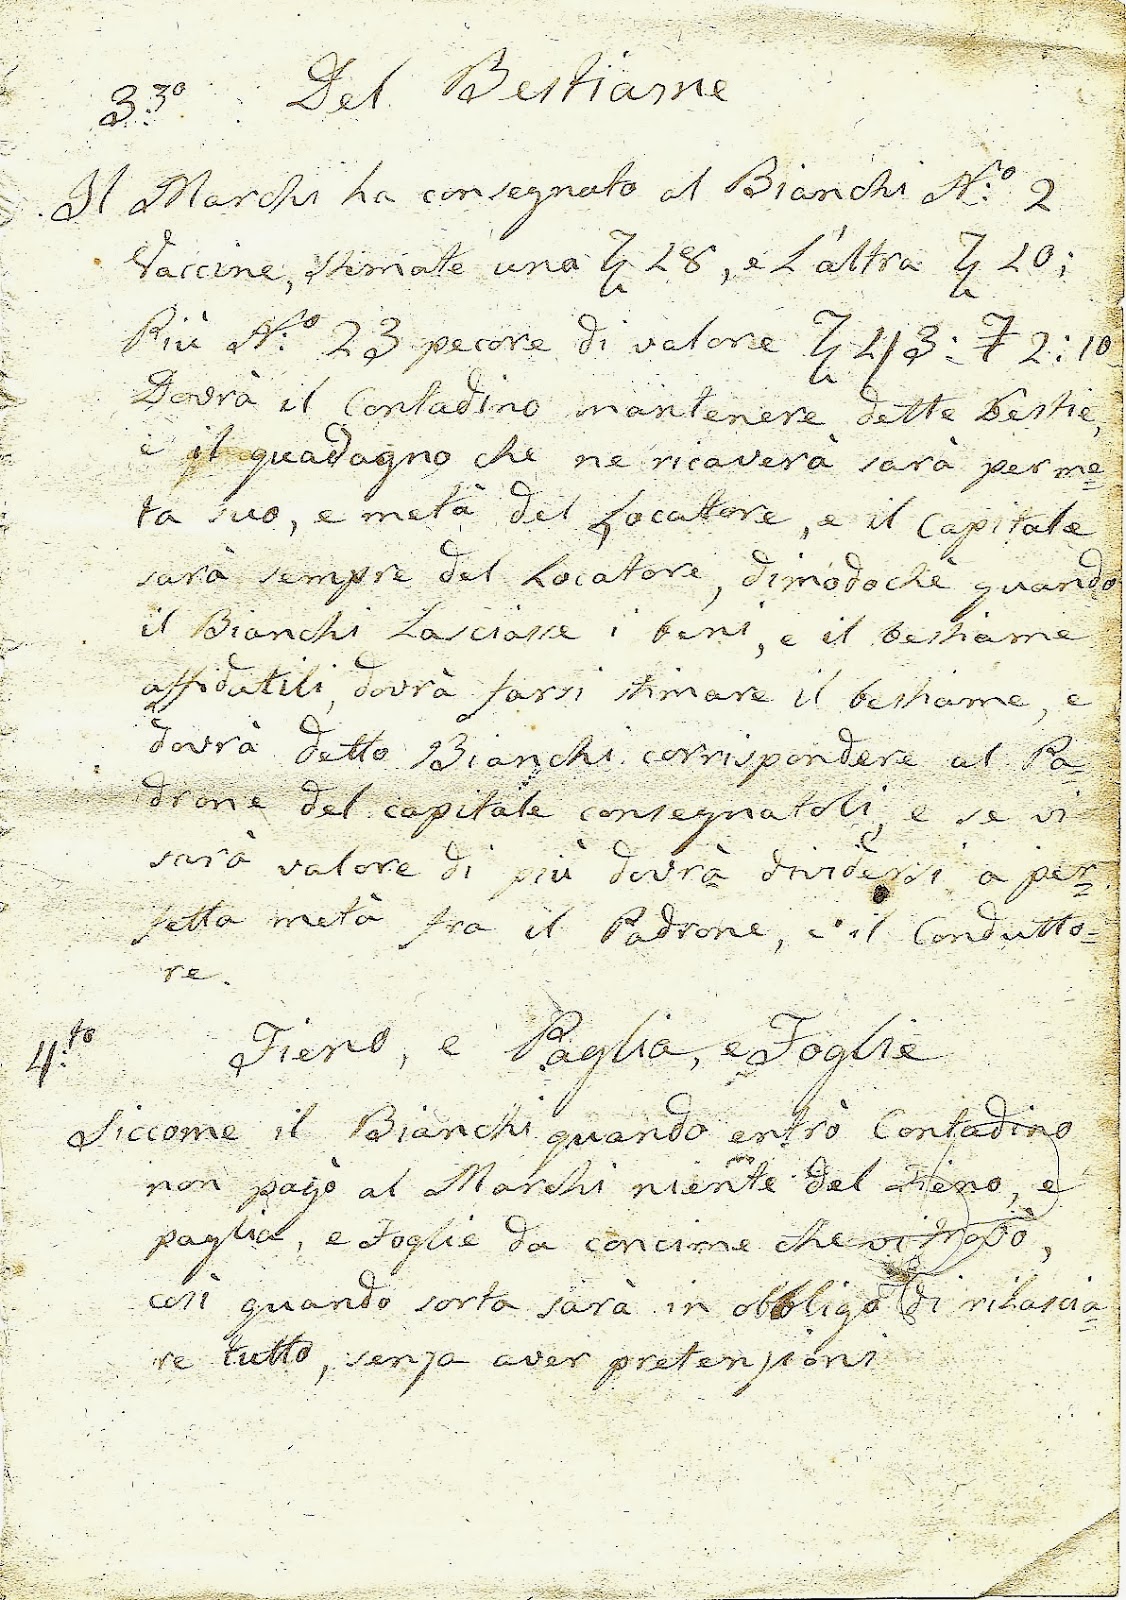 3.zo Del Bestiame
Il Marchi ha consegnato al Bianchi N.o 2
Vaccine, stimate una 28, e L'altra 20;
Più N.o 23 pecore di valore 43: 2:10
Dovrà il Contadino mantenere dette bestie,
e il guadagno che ne ricaverà sarà per me=
ta suo, e metà del Locatore, e il Capitale
sarà sempre del Locatore, dimodochè quando
il Bianchi Lasciasse i beni, e il bestiame
affidatili, dovrà farsi stimare il bestiame, e
dovrà detto Bianchi corrispondere al Pa=
drone del capitale consegnatoli, e se vi
sarà valore di più dovrà dividersi a per=
fetta metà fra il Padrone, e il Condutto=
re.
4.to Fieno, e Paglia, e Foglie
Siccome il Bianchi quando entrò Contadino
non pagò al Marchi niente del Fieno, e
paglia, e Foglie da concime che vi trovò,
così quando sorta sarà in obbligo di rilascia=
re tutto, senza aver pretenzioni